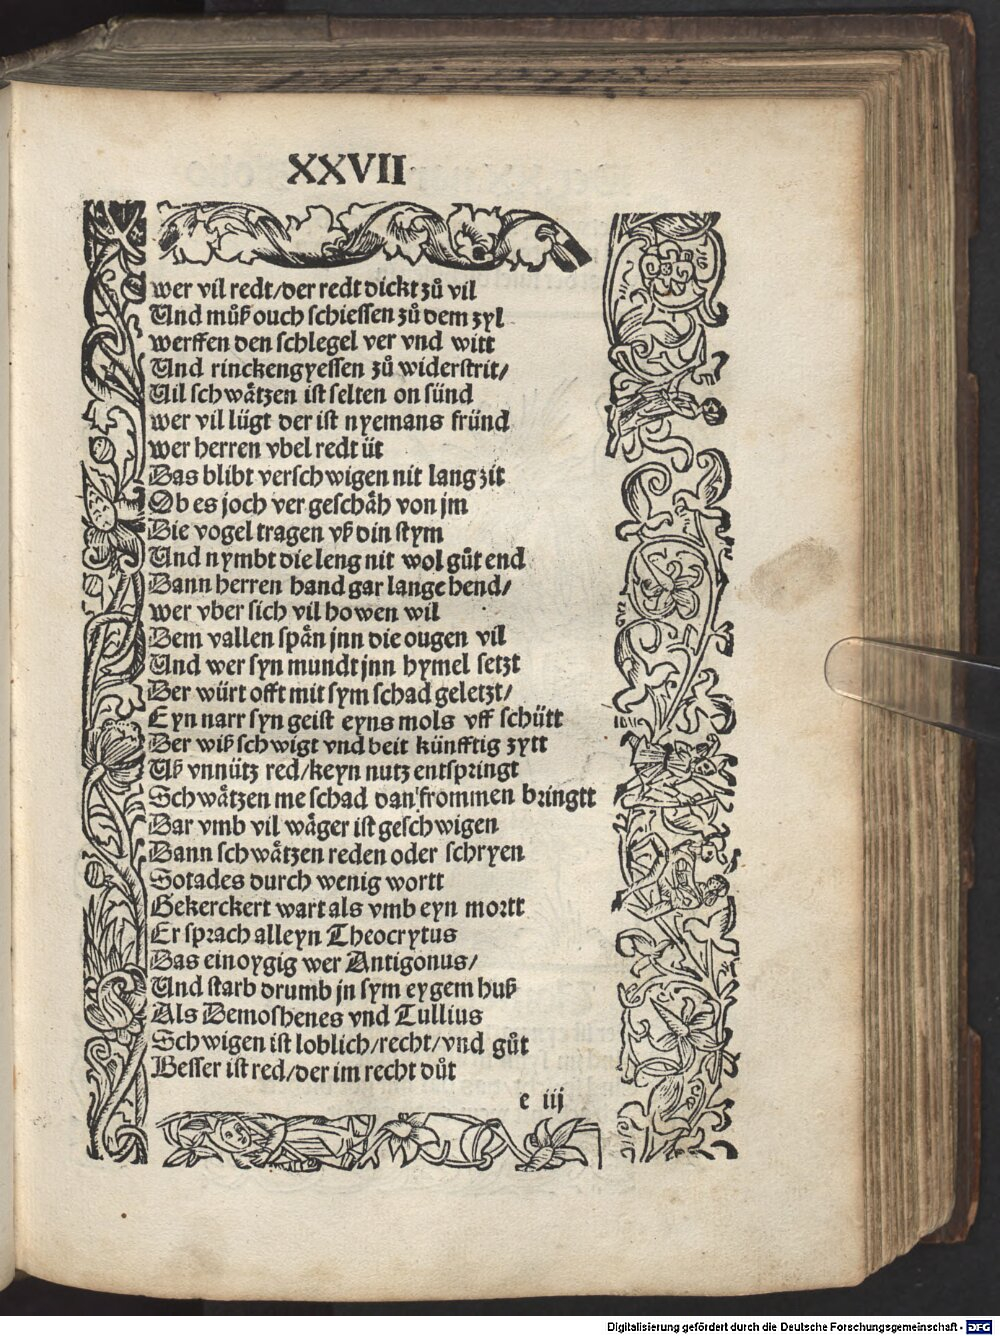 XXVII
wer vil redt/der redt dickt zů vil
Und můß ouch schiessen zů dem zyl
werffen den schlegel ver vnd witt
Und rinckengyessen zů widerstrit/
Uil schwätzen ist selten on sünd
wer vil lügt der ist nyemans fründ
wer herren vbel redt üt
Das blibt verschwigen nit lang zit
Ob es joch ver geschäh von jm
Die vogel tragen vß din stym
Und nymbt die leng nit wol gůt end
Dann herren hand gar lange hend/
wer vber sich vil howen wil
Dem vallen spän jnn die ougen vil
Und wer syn mundt jnn hymel setzt
Der würt offt mit sym schad geletzt/
Eyn narr syn geist eyns mols vff schütt
Der wiß schwigt vnd beit künfftig zytt
Uß vnnütz red/keyn nutz entspringt
Schwätzen me schad dan frommen bringtt
Dar vmb vil wäger ist geschwigen
Dann schwätzen reden oder schryen
Sotades durch wenig wortt
Gekerckert wart als vmb eyn mortt
Er sprach alleyn Theocrytus
Das einoygig wer Antigonus/
Und starb drumb jn sym eygem huß
Als Demoshenes vnd Tullius
Schwigen ist loblich/recht/vnd gůt
Besser ist red/der im recht důt
e iij
Digitalisierung gefördert durch die Deutsche Forschungsgemeinschaft - DFG